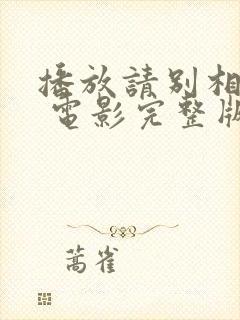 播放請別相
電影完整版
蒿雀